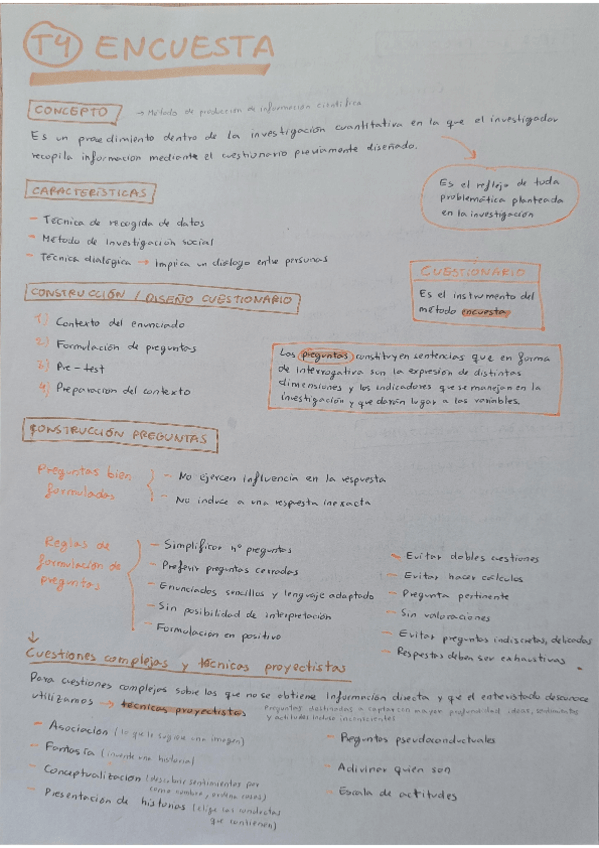 T4 ENCUESTA
CONCEPTO → Método de producción de información científica
Es un procedimiento dentro de la investigación cuantitativa en la que el investigador
recopila información mediante el cuestionario previamente diseñado.
Es el reflejo de toda
problemática planteada
en la investigación
CARACTERÍSTICAS
- Técnica de recogida de datos
- Método de Investigación social
- Técnica dialógica → Implica un diálogo entre personas
CUESTIONARIO
Es el instrumento del
método encuesta
CONSTRUCCIÓN / DISEÑO CUESTIONARIO
1) Contexto del enunciado
2) Formulación de preguntas
3) Pre-test
4) Preparación del contexto
Las preguntas constituyen sentencias que en forma
de interrogativa son la expresión de distintas
dimensiones y los indicadores que se manejan en la
investigación y que darán lugar a las variables.
CONSTRUCCIÓN PREGUNTAS
Preguntas bien
formuladas
- No ejercen influencia en la respuesta
- No induce a una respuesta inexacta
Reglas de
formulación de
preguntas
- Simplificar nº preguntas
- Preferir preguntas cerradas
- Enunciados sencillos y lenguaje adaptado
- Sin posibilidad de interpretación
- Formulación en positivo
- Evitar dobles cuestiones
- Evitar hacer cálculos
- Pregunta pertinente
- Sin valoraciones
- Evitar preguntas indiscretas, delicadas
- Respuestas deben ser exhaustivas
↓
Cuestiones complejas y técnicas proyectistas
Para cuestiones complejas sobre las que no se obtiene información directa y que el entrevistado desconoce
utilizamos → técnicas proyectistas Preguntas destinadas a captar con mayor profundidad ideas, sentimientos
y actitudes incluso inconscientes
- Asociación (lo que le sugiere una imagen)
- Fantasía (invente una historia)
- Conceptualización (describir sentimientos por
como nombra, ordena cosas)
- Presentación de historias (elige las conductas
que contienen)
- Preguntas pseudoconductuales
- Adivinar quien son
- Escala de actitudes